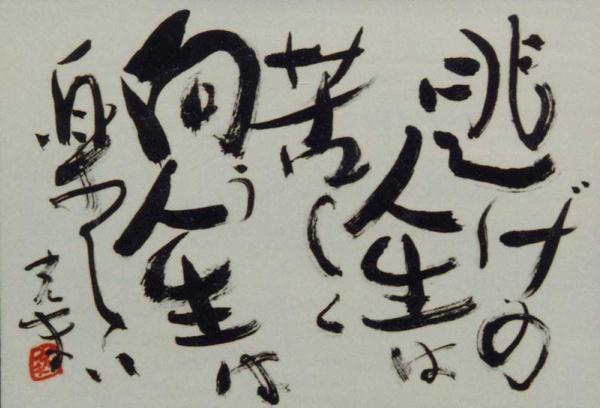 逃げの
人生は
苦しく
向う人生は
楽しい